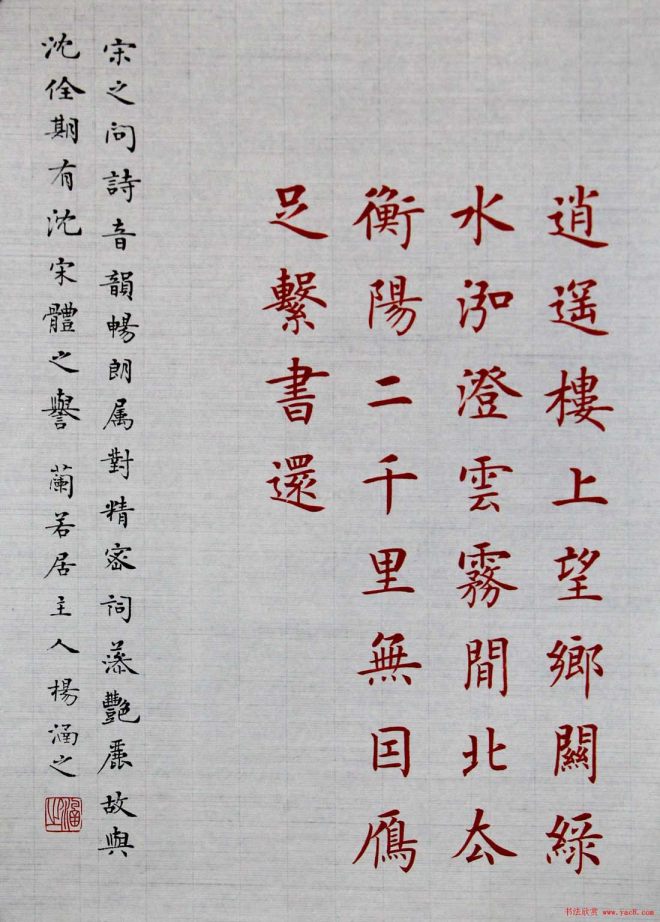 逍遥樓上望鄉關綠
水泓澄雲霧間北去
衡陽二千里無因鴈
足繫書還
宋之问詩音韻暢朗属對精密詞藻艷麗故與
沈佺期有沈宋體之譽 蘭若居主人楊涵之
涵之
书法欣赏 www.yac8.com